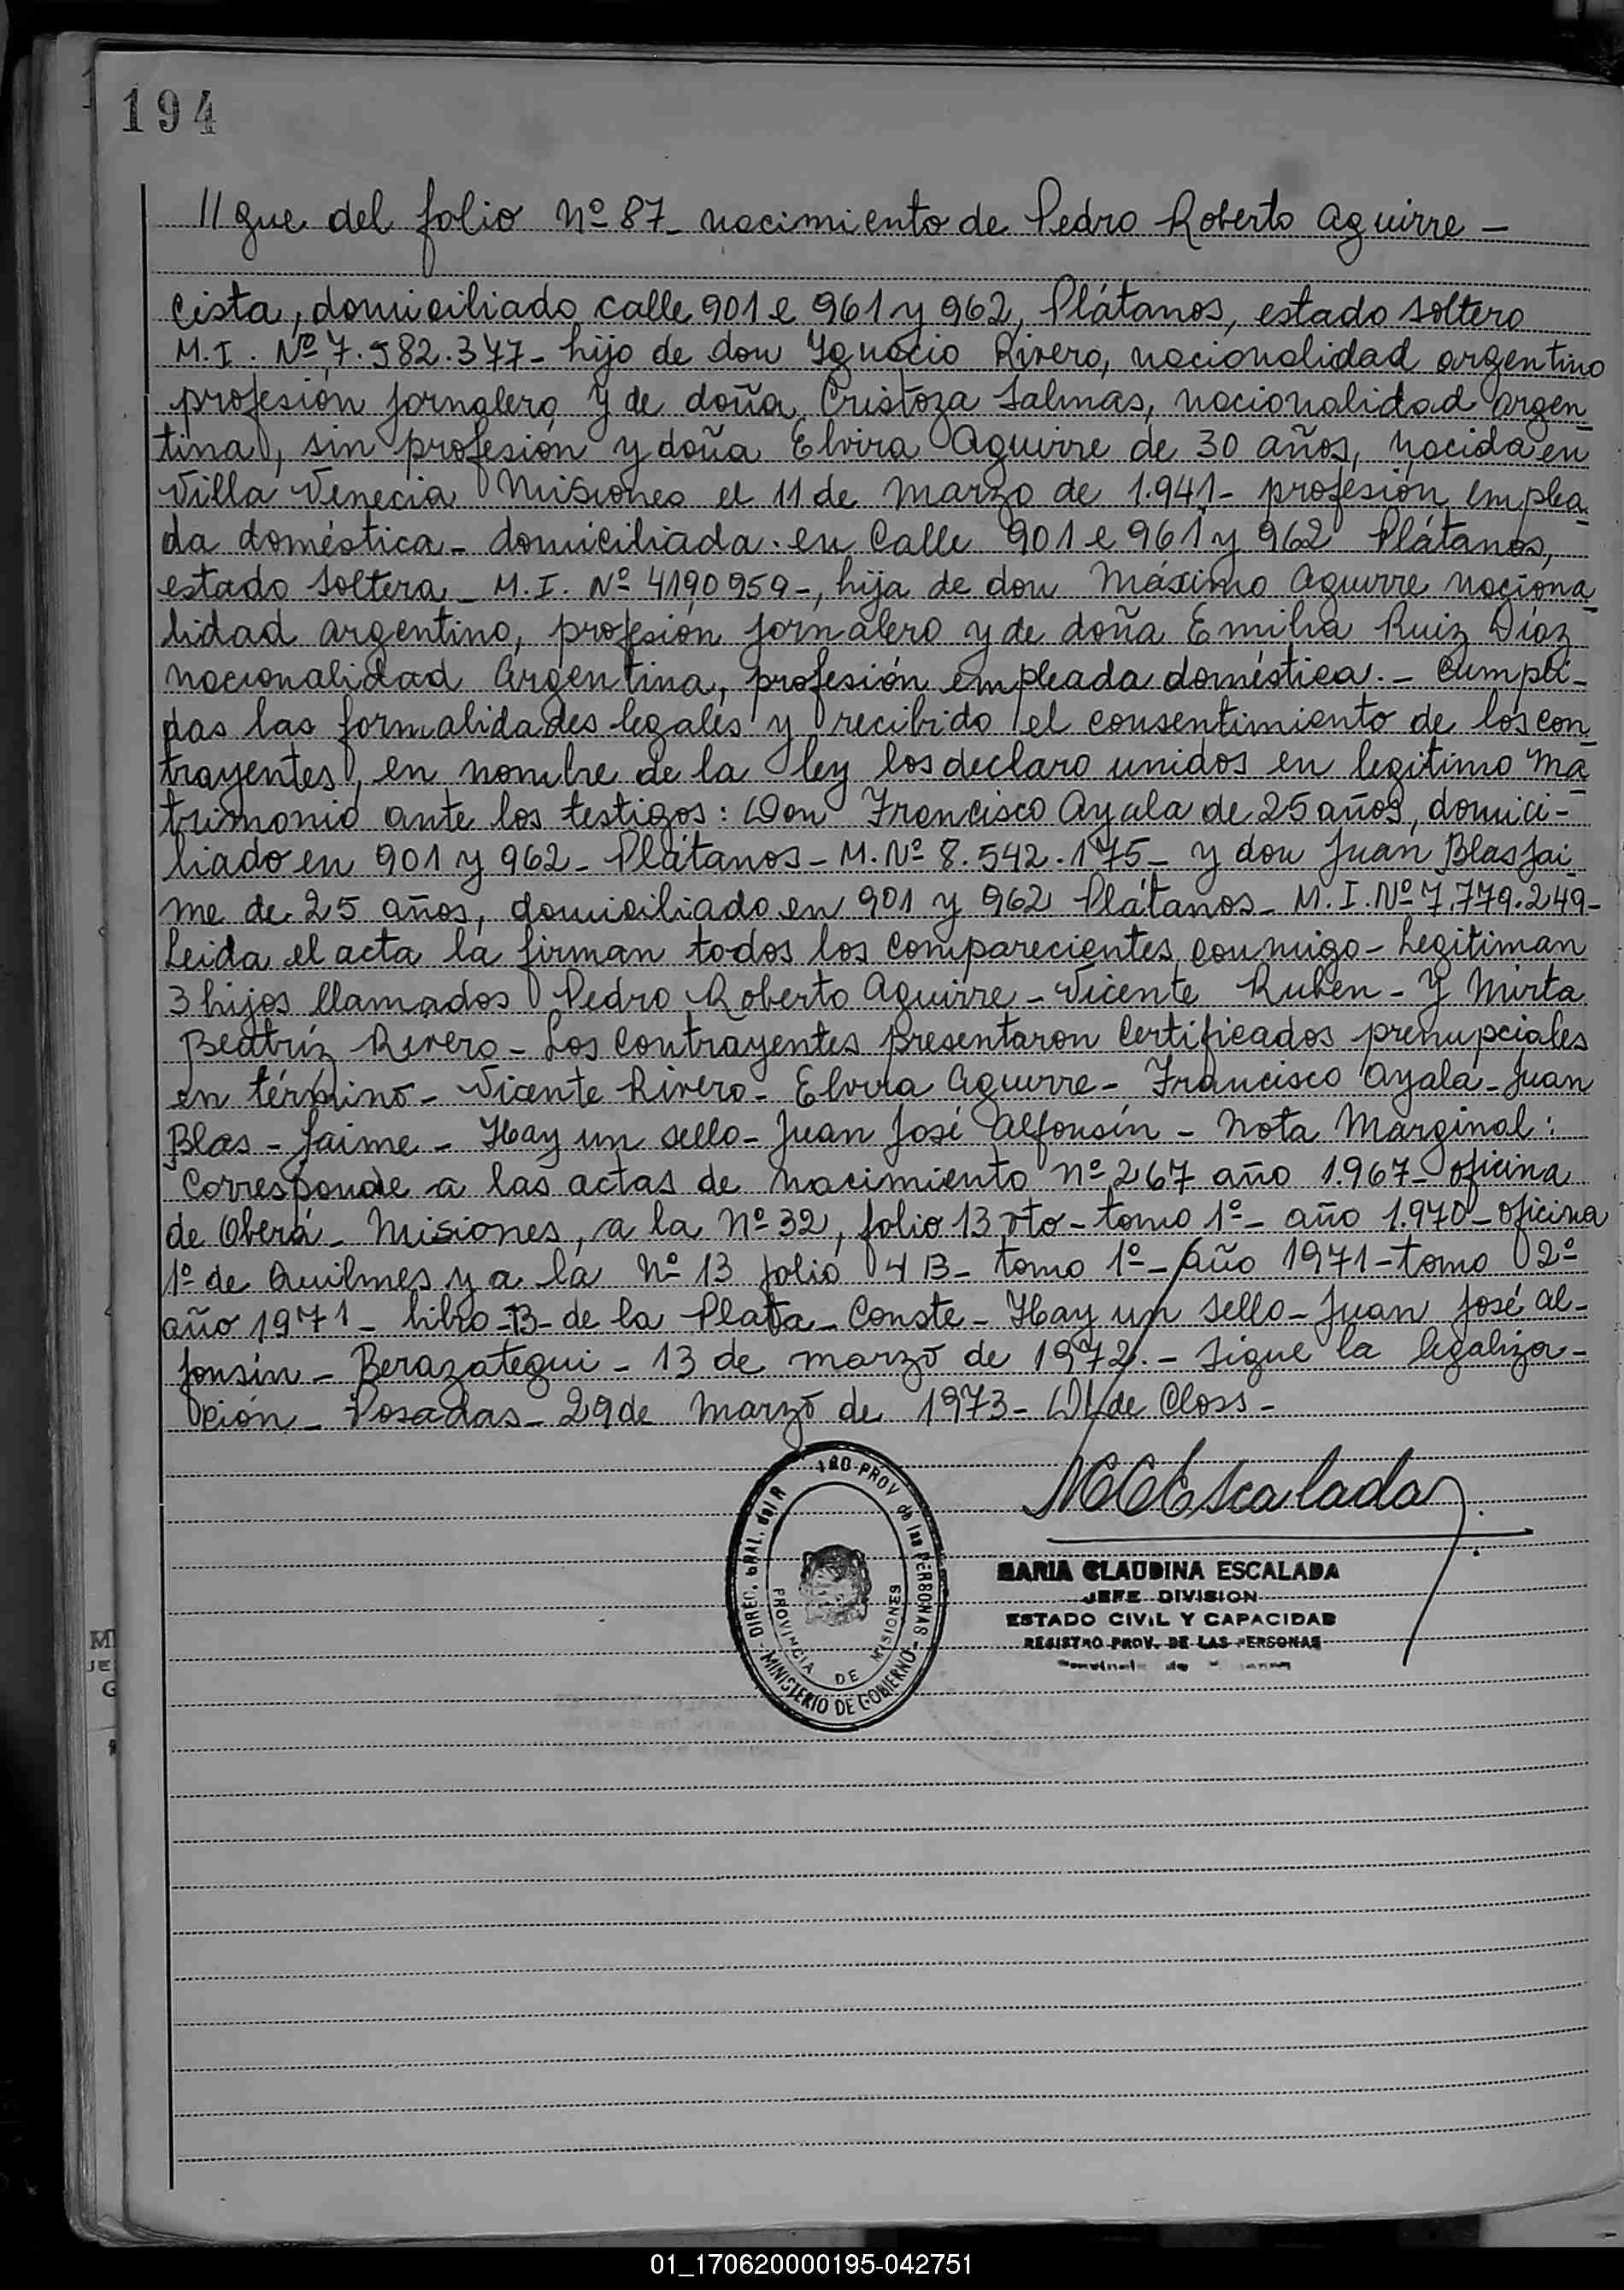 194
//gue del folio Nº 87_ nacimiento de Pedro Roberto Aguirre -
cista, domiciliado calle 901 e 961 y 962, Plátanos, estado soltero
M.I. Nº 7.582.377- hijo de don Ygnacio Rivero, nacionalidad argentino
profesión jornalero y de doña Cristoza Salinas, nacionalidad argen_
tina, sin profesión y doña Elvira Aguirre de 30 años, nacida en
Villa Venecia Misiones el 11 de Marzo de 1.941- profesión emplea_
da doméstica- domiciliada en Calle 901 e 961 y 962 Plátanos,
estado soltera_ M.I. Nº 4190959-, hija de don Máximo Aguirre naciona_
lidad argentino, profesión jornalero y de doña Emilia Ruiz Díaz
nacionalidad Argentina, profesión empleada doméstica.- Cumpli-
das las formalidades legales y recibido el consentimiento de los con_
trayentes, en nombre de la ley los declaro unidos en legítimo ma_
trimonio ante los testigos: Don Francisco Ayala de 25 años, domici-
liado en 901 y 962- Plátanos- M. Nº 8.542.175- y don Juan Blas Jai_
me de 25 años, domiciliado en 901 y 962 Plátanos- M.I. Nº 7.779.249-
Leida el acta la firman todos los comparecientes conmigo- Legitiman
3 hijos llamados Pedro Roberto Aguirre- Vicente Ruben- Y Mirta
Beatríz Rivero- Los Contrayentes presentaron Certificados prenupciales
en término- Vicente Rivero- Elvira Aguirre- Francisco Ayala- Juan
Blas- Jaime- Hay un sello- Juan José Alfonsín- Nota Marginal:
Corresponde a las actas de nacimiento Nº 267 año 1.967- oficina
de Oberá- Misiones, a la Nº 32, folio 13 vto- tomo 1º- año 1.970- oficina
1º de Quilmes y a la Nº 13 folio 4 B- tomo 1º- año 1971- tomo 2º
año 1971- libro-B- de la Plata- Conste- Hay un sello- Juan José Al-
fonsín- Berazategui- 13 de marzo de 1972.- Sigue la legaliza-
ción- Posadas- 29 de Marzo de 1973- de Closs-
MCEscalada
DIREC. GRAL. del R PROV de las PERSONAS
PROVINCIA DE MISIONES
MINISTERIO DE GOBIERNO
MARIA CLAUDINA ESCALADA
JEFE DIVISION
ESTADO CIVIL Y CAPACIDAD
REGISTRO PROV. DE LAS PERSONAS
01_170620000195-042751